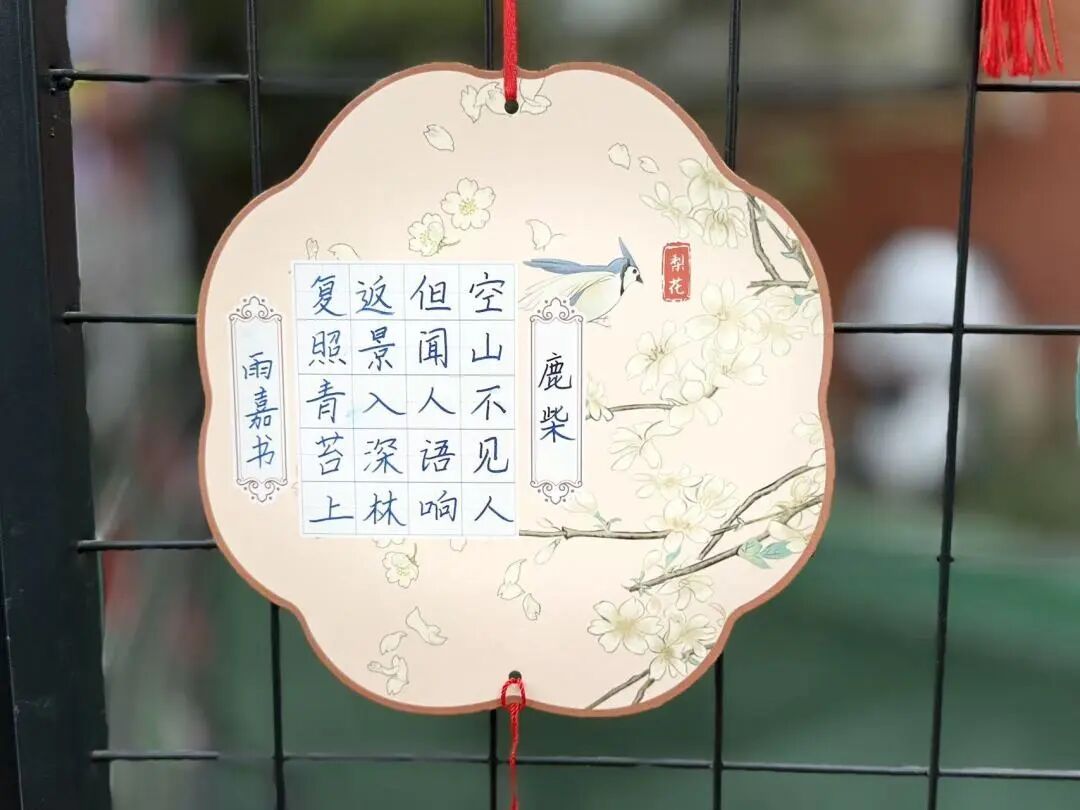 梨花
鹿柴
空山不见人
但闻人语响
返景入深林
复照青苔上
雨嘉书